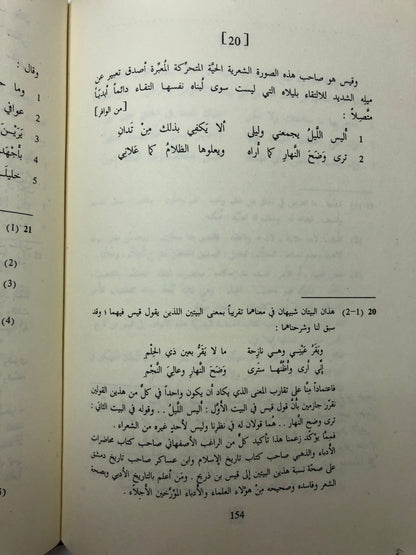 [20]
وقيس هو صاحب هذه الصورة الشعرية الحيَّة المتحركة المُعبِّرة أصدق تعبير عن
ميله الشديد للالتقاء بليلاه التي ليست سوى لُبناه نفسها التقاء دائماً أبديّاً
متَّصِلاً :
[من الوافر]
1 أليس اللَّيلُ يجمعني وليلى ألا يَكفي بذلك مِنْ تَدانِ
2 ترى وَضَحَ النَّهارِ كما أراه ويعلوها الظلامُ كما عَلاني
20 (1-2) هذان البيتان شبيهان في معناهما تقريباً بمعنى البيتين اللذين يقول قيس فيهما ؛ وقد
سبق لنا وشرحناهما :
ويَقَرُّ عَيْني وهي نازِحة ما لا يَقَرُّ بعين ذي الحِلْمِ
إنِّي أرى وأظُنُّها سَترى وَضَحَ النَّهار وعاليَ النَّجْمِ
فاعتماداً منَّا على تقارب المعنى الذي يكاد أن يكون واحداً في كلٍّ من هذين القولين
نقرِّر جازمين بأنَّ قول قيس في البيت الأوَّل : أليس اللَّيلُ .. وقوله في البيت الثاني :
ترى وضح النَّهار .. هُما قولان له في نظرنا وليس لأحدٍ غيره من الشعراء .
فممَّا يؤكِّد زعمنا هذا تأكيد كلٍّ من الراغب الأصفهاني صاحب كتاب محاضرات
الأدباء والذهبي صاحب كتاب تاريخ الإسلام وابن عساكر صاحب تاريخ دمشق
على صحَّة نسبة هذين البيتين إلى قيس بن ذريح . ومَن أعلم بالتاريخ الأدبي وبصحة
الشعر وفاسده وصحيحه مِنْ هؤلاء العلماء والأدباء المؤرِّخين الأجلاَّء .
154
وقال :
1 وما
2 عوافي
3 يَزِيْنَ
4 بأجْهَدَ
5 خليلَـ
21 (1)
(2)
(3)
(4)